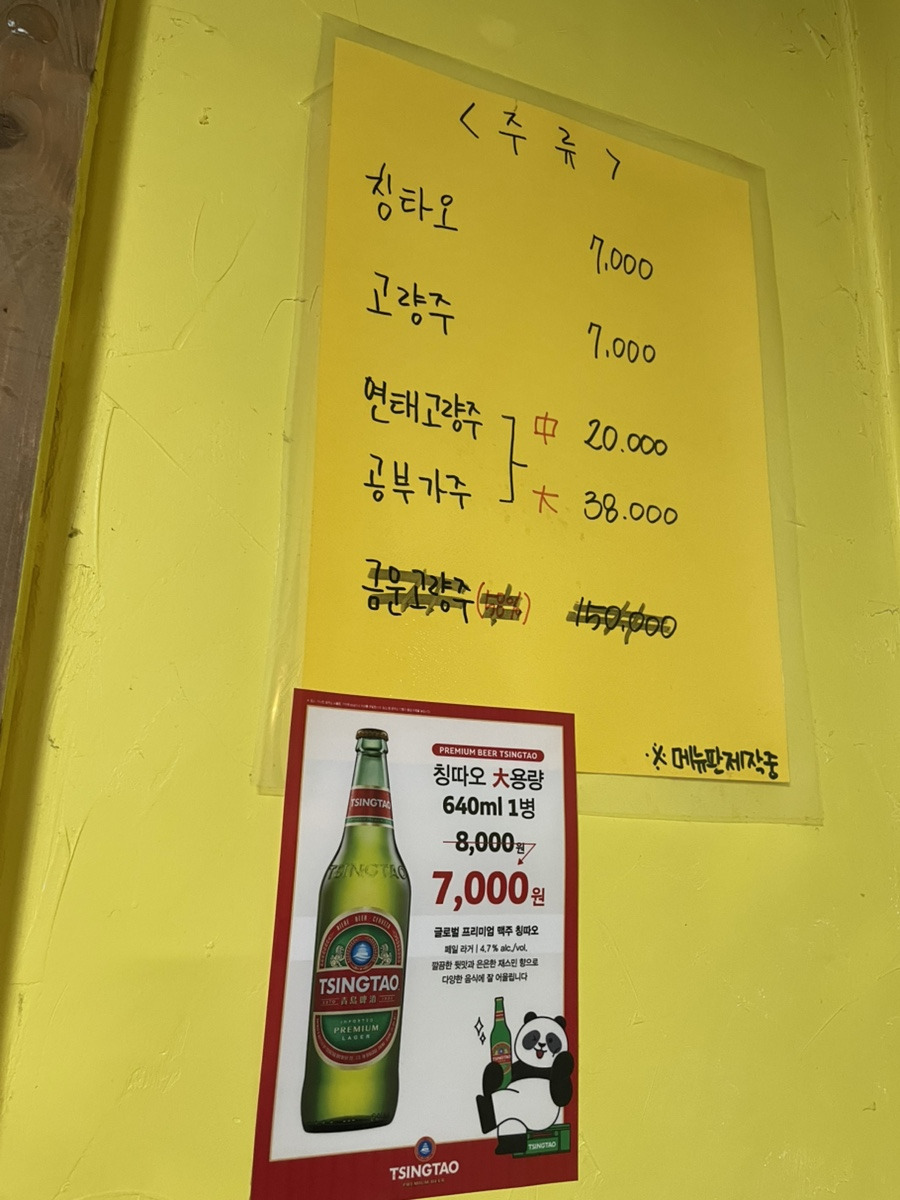 < 주 류 >
칭타오 7,000
고량주 7,000
연태고량주 中 20.000
공부가주 大 38.000
금문고량주(58%) 150,000
·※ 메뉴판제작중
PREMIUM BEER TSINGTAO
칭따오 大용량
640ml 1병
8,000원
7,000원
글로벌 프리미엄 맥주 칭따오
페일 라거 | 4.7% alc./vol.
깔끔한 뒷맛과 은은한 재스민 향으로
다양한 음식에 잘 어울립니다
TSINGTAO
TSINGTAO
BIERE BEER CERVEZA
TSINGTAO
青島啤酒
IMPORTED
PREMIUM
LAGER
TSINGTAO
TSINGTAO
TSINGTAO
PREMIUM BEER